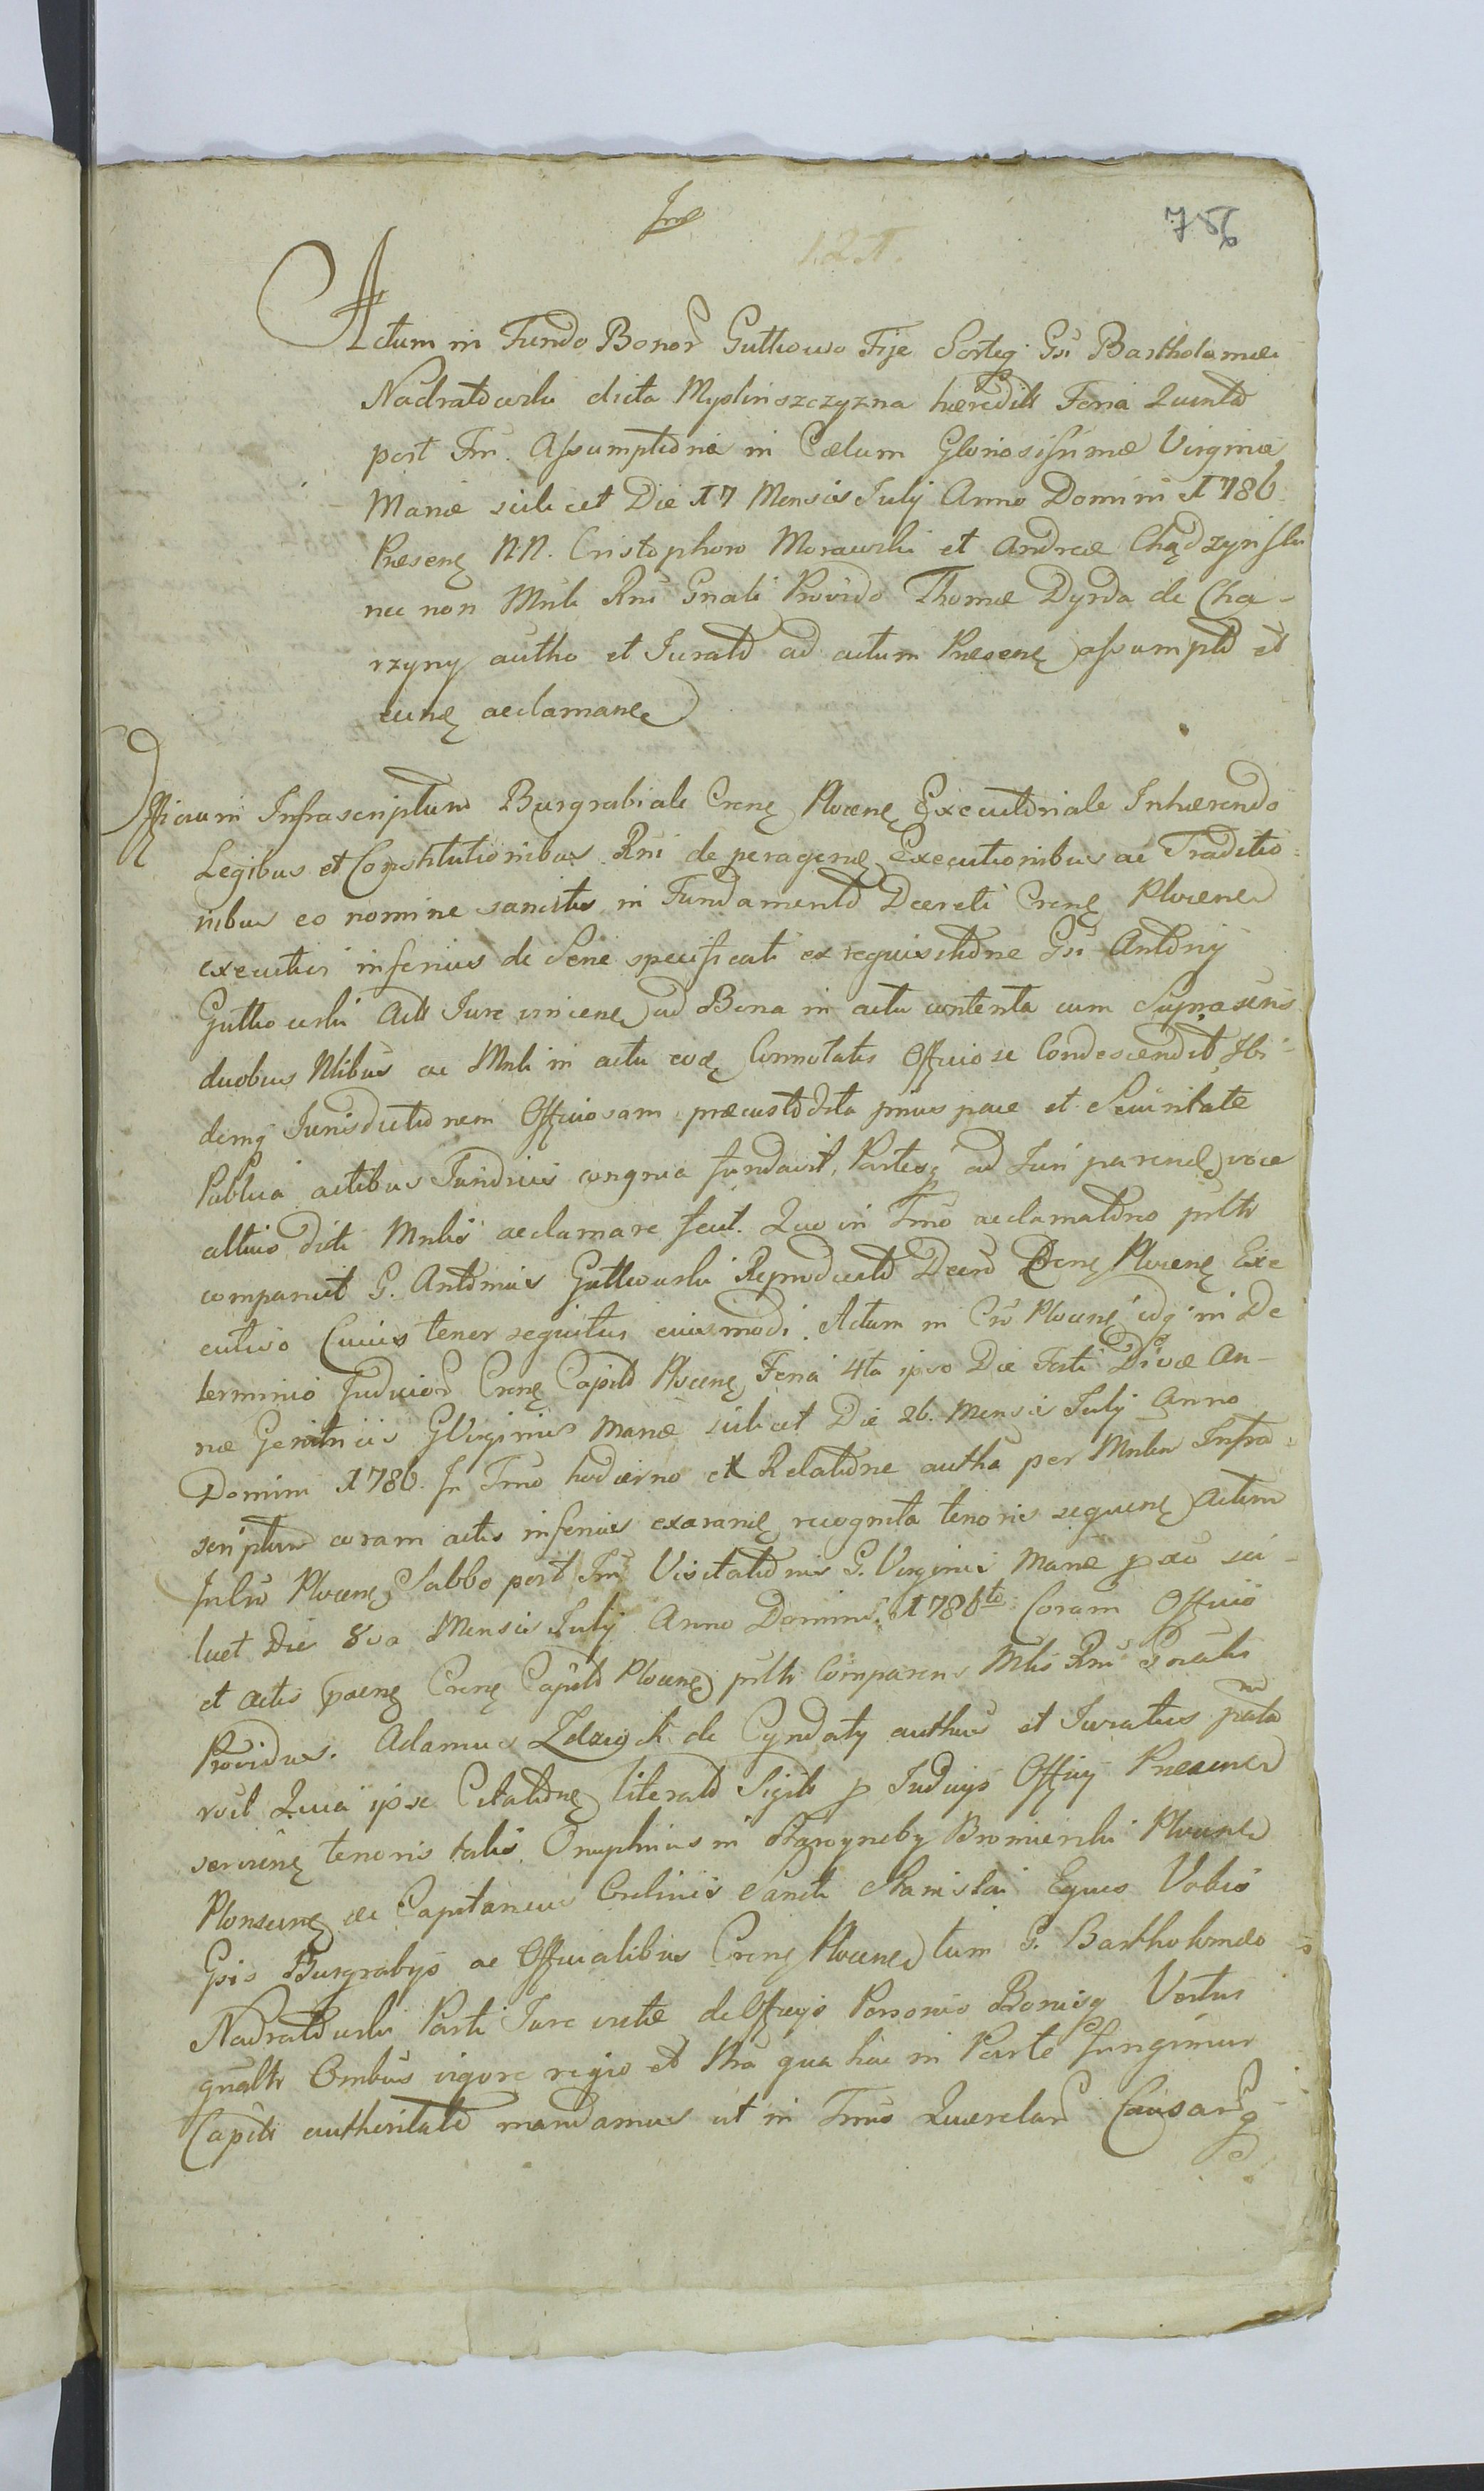 786
Actum in Fundo Bonor Gutkowo Fije Sorteq Gsi Bartholamei
Nadratowski dicta Myslinszczyzna hæredit Feria Quinta
post Fm. Assumptionis in Cælum Gloriosissimæ Virginis
Mariæ scilicet Die 17 Mensis Julij Anno Domini 1786
Presene N.N. Cristophoro Morawski et Andreæ Chądzyński
nec non Mnli Rni Gnali Provido Thoma Dyrda de Cha-
rzyny autho et Jurato ad actum Presene assumpto et
eune acclamane
Officium Infrascriptum Burgrabiale Crene Plocene Executoriale Inhærendo
Legibus et Constitutionibus Rni de peragene Executionibus ac Traditio
nibus eo nomine sancitis in Fundamento Decreti Crene Plocene
executivi inferius de Serie specificati ex requisitione Gsi Antonij
Gutkowski Act Jure vincene ad Bona in actu contenta cum Suprascris
duobus Nlibus ac Mnli in actu eod Connotatis Officiose Condescendit, Ibi
demq Jurisdictionem Officiosam præcustodita prius pace et Securitate
Publica actibus Juridicis congrua fundavit, Partesq ad Juri parene voce
altius dicti Mnlis acclamare fecit. Quo in Tmo acclamationis pnltr
comparuit G. Antonius Gutkowski Reproducto Decro Crene Plocene Exe
cutivo Cuius tenor sequitur eiusmodi. Actum in Cro Plocene idq in De
terminio Judicior Crene Capitl Plocene Feria 4ta ipso Die Festi Divæ An-
næ Genitricis G Virginis Mariæ scilicet Die 26. Mensis Julij Anno
Domini 1786. In Tmo hodierno et Relatione autha per Mnlem Infra
scriptum coram actis inferius exarane recognita tenoris sequene Actum
in Cro Plocene Sabbo post Fm Visitationis G. Virginis Mariæ pxo sci-
licet Die 8va Mensis Julij Anno Domini 1786to Coram Officio
et actis pxene Crene Capitl Plocene pnltr Comparens Mnlis Rni Gnalis
Providus. Adamus de Cyndaty authus et Juratus
vit Quia ipse Citatione literato Sigilli p Judicijs Officij Presene
serviene tenoris talis. Onuphrius in Bromierski Plocene
Plonscene Capitaneus Ordinis Sancti Stanislai Eques Vobis
Gsis Burgrabijs ac Officialibus Crene Plocene tum G. Bartholomeo
Nadratowski Parti Jure victæ de Officijs Personis Bonisq Vestris
gnaltr Ombus vigore regio et Nra qua hac in Parte fungimur
Capitli authoritate mandamus ut in Tmo Querelar Causarq